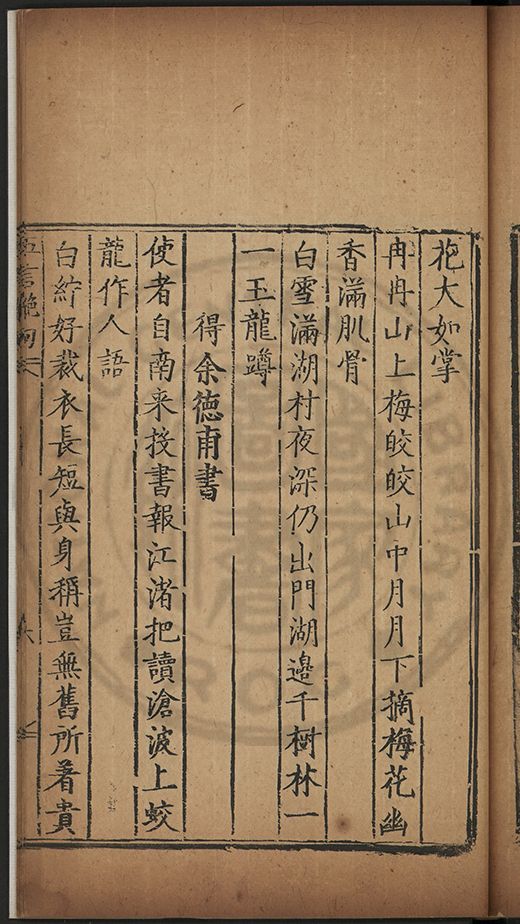 花大如掌
冉冉山上梅皎皎山中月月下摘梅花幽
香滿肌骨
白雪滿湖村夜深仍出門湖邉千樹林一
一玉龍蹲
得余德甫書
使者自南来投書報江渚把讀滄波上蛟
龍作人語
白紵好裁衣長短與身稱豈無舊所着貴
五言絶句 六